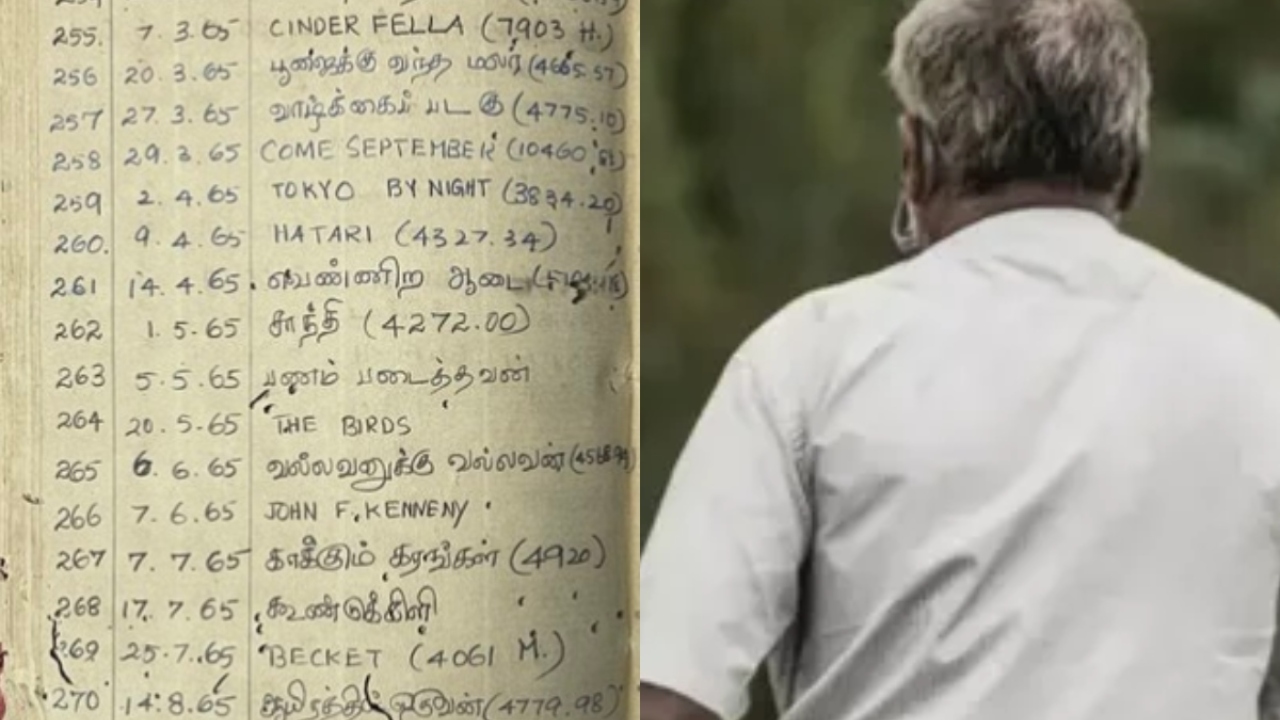 255. 7.3.65 CINDER FELLA (7903 H.)
256 20.3.65 பூஜைக்கு வந்த மலர் (4665.57)
257 27.3.65 வாழ்க்கைப் படகு (4775.10)
258 29.3.65 COME SEPTEMBER (10460
259 2.4.65 TOKYO BY NIGHT (3834.20)
260. 9.4.65 HATARI (4327.34)
261 14.4.65 வெண்ணிற ஆடை
262 1.5.65 சாந்தி (4272.00)
263 5.5.65 பணம் படைத்தவன்
264 20.5.65 THE BIRDS
265 6.6.65 வல்லவனுக்கு வல்லவன்
266 7.6.65 JOHN F. KENNENY
267 7.7.65 காக்கும் கரங்கள் (4920)
268 17.7.65 கூண்டுக்கிளி
269 25.7.65 BECKET (4061 M.)
270 14.8.65 ஆயிரத்தில் ஒருவன் (4779.98)